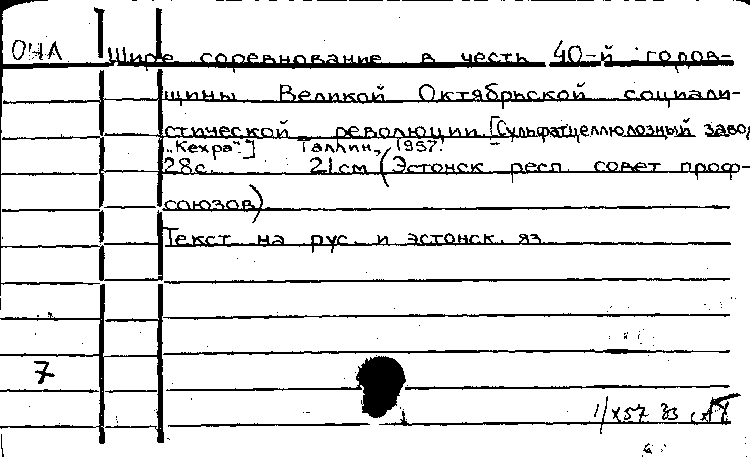 ОНЛ Шире соревнование в честь 40-й годов-
щины Великой Октябрьской социали-
стической революции. [Сульфатцеллюлозный завод
„Кехра"] Таллин, 1957.
28с. 21см (Эстонск респ. совет проф-
союзов)
Текст на рус. и эстонск. яз
7